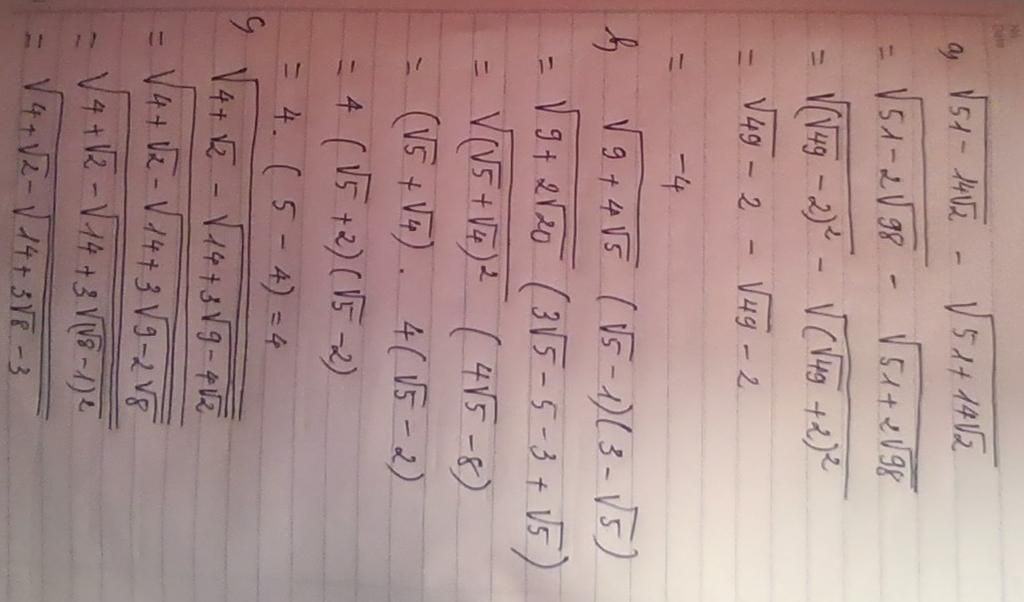 a, √(51 - 14√2) - √(51 + 14√2)
= √(51 - 2√98) - √(51 + 2√98)
= √((√49 - 2)²) - √((√49 + 2)²)
= √49 - 2 - √49 - 2
= -4
b, √(9 + 4√5) (√5 - 1)(3 - √5)
= √(9 + 2√20) (3√5 - 5 - 3 + √5)
= √((√5 + √4)²) (4√5 - 8)
= (√5 + √4) . 4(√5 - 2)
= 4 (√5 + 2)(√5 - 2)
= 4 . (5 - 4) = 4
c, √(4 + √2 - √(14 + 3√(9 - 4√2)))
= √(4 + √2 - √(14 + 3√(9 - 2√8)))
= √(4 + √2 - √(14 + 3√((√8 - 1)²)))
= √(4 + √2 - √(14 + 3√8 - 3))